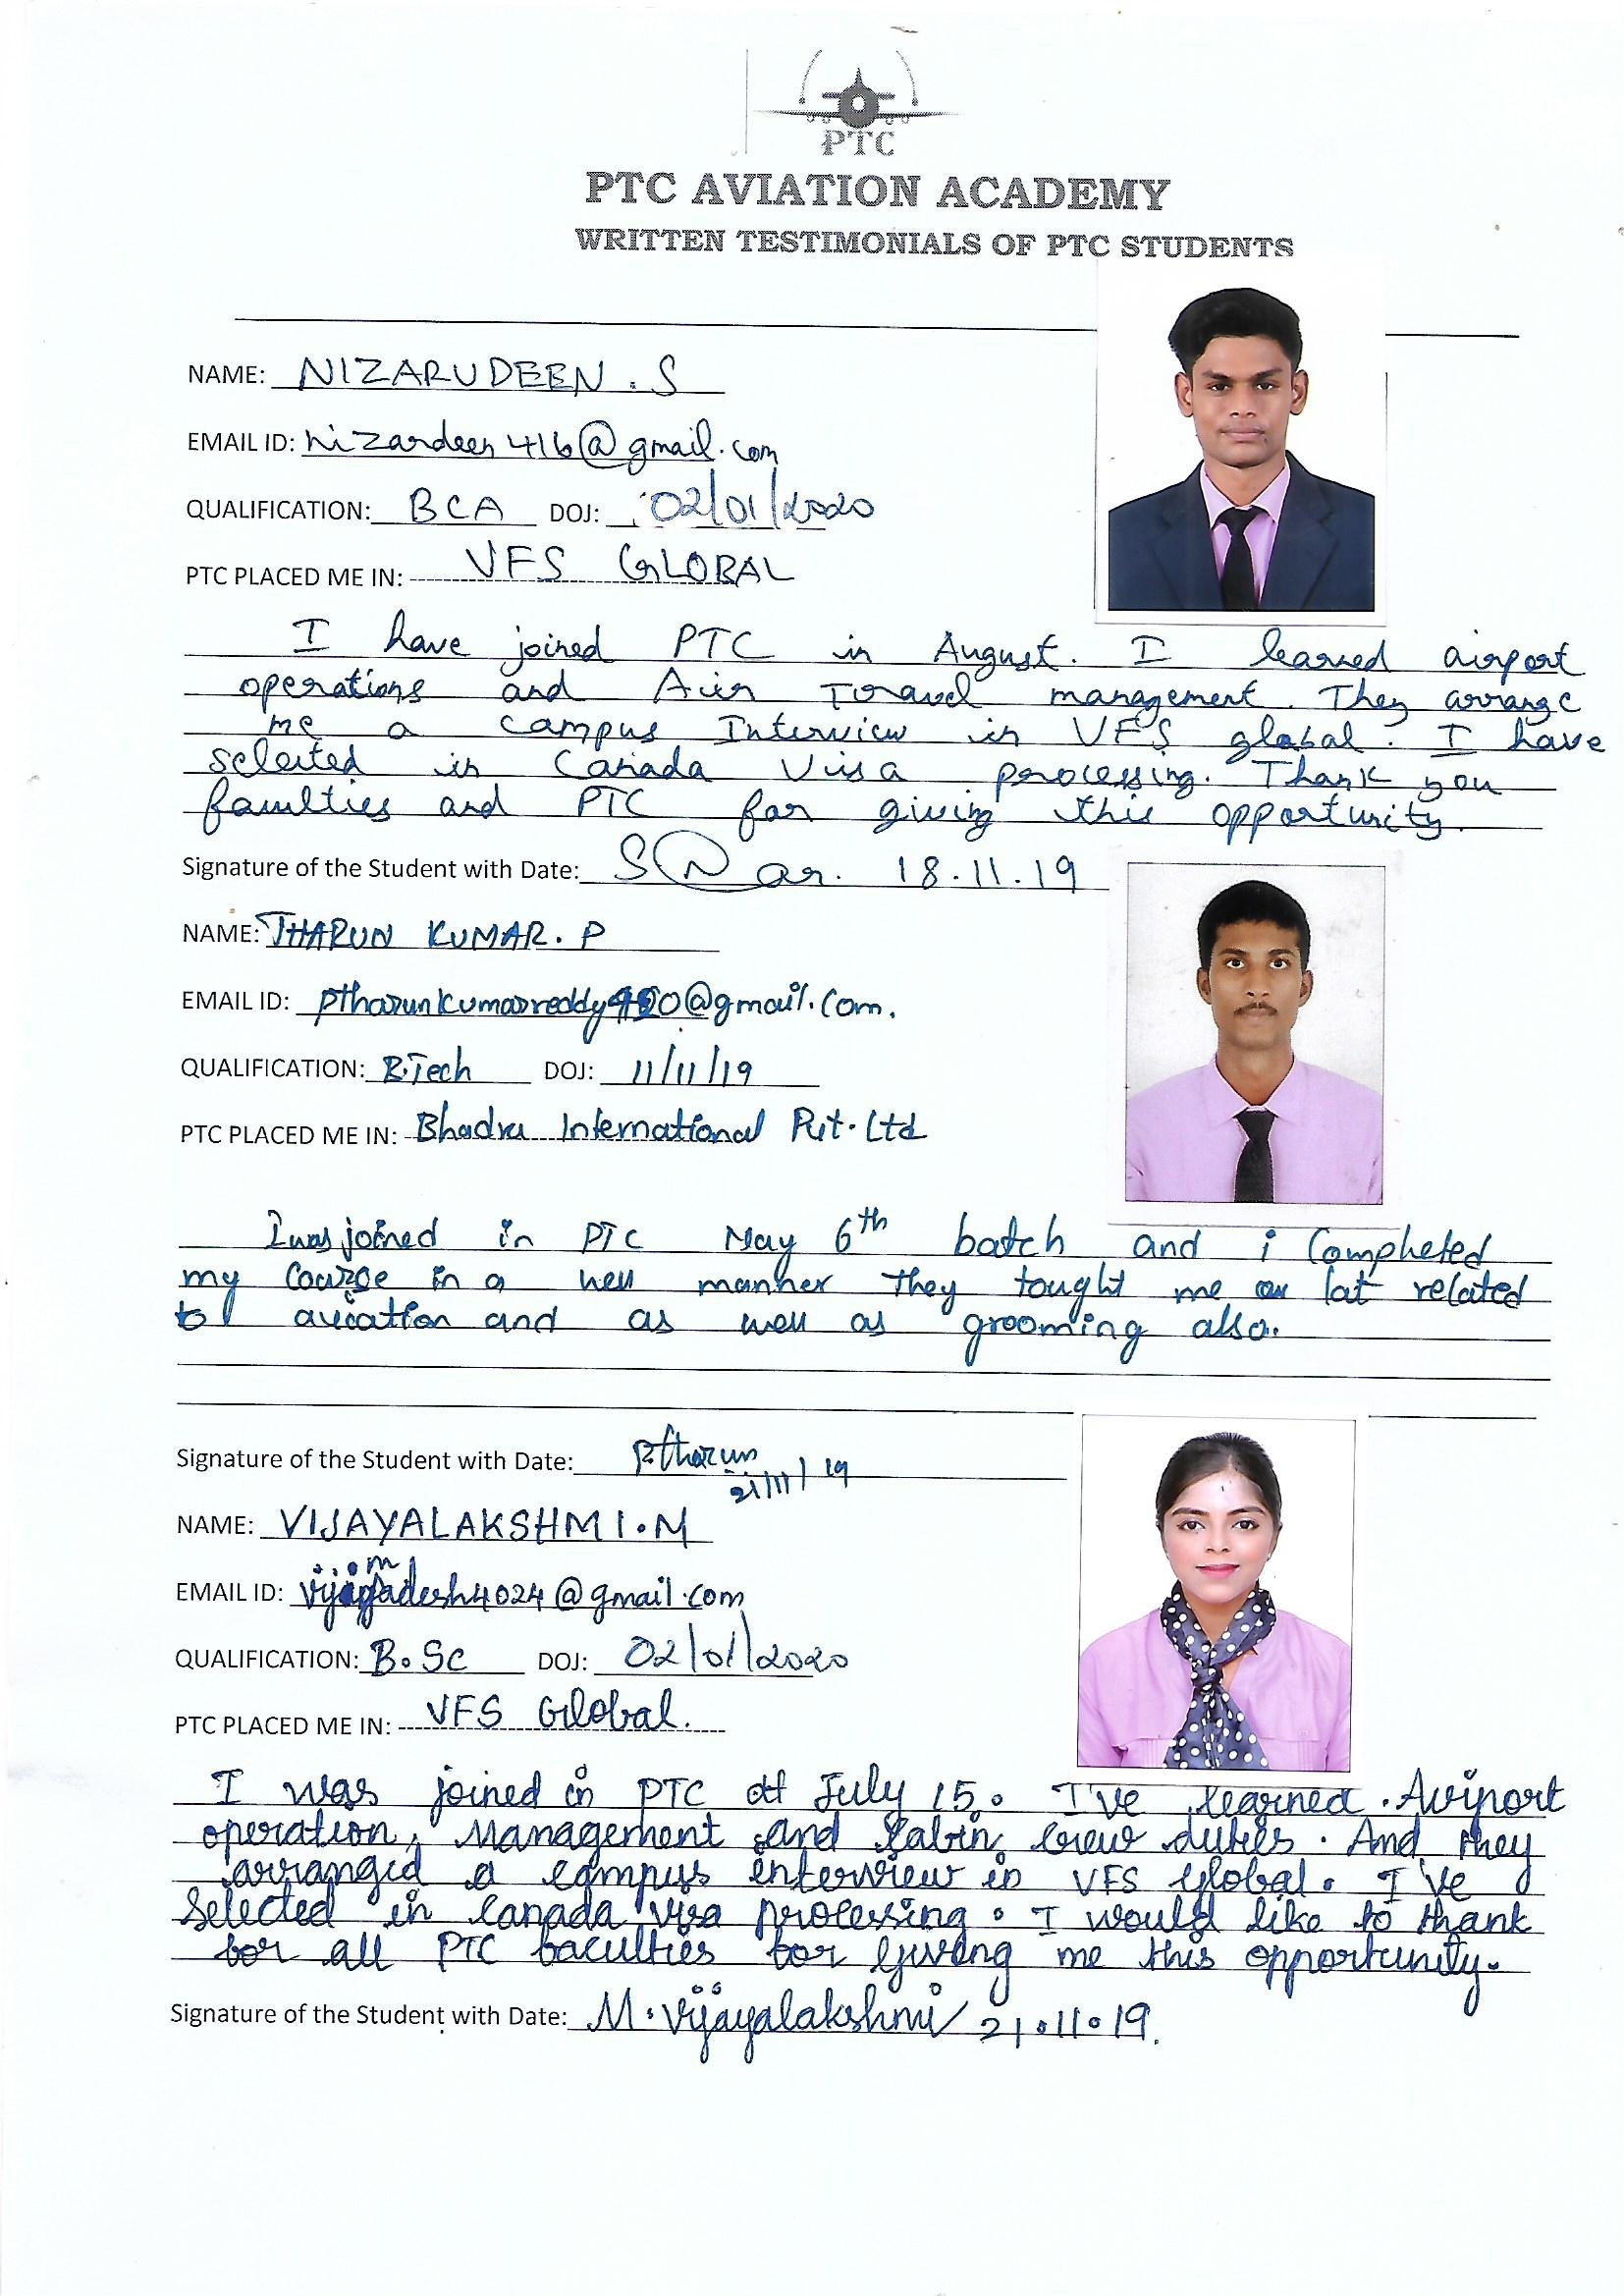 PTC
PTC AVIATION ACADEMY
WRITTEN TESTIMONIALS OF PTC STUDENTS
NAME: NIZARUDEEN . S
EMAIL ID: nizardeen416@gmail.com
QUALIFICATION: BCA DOJ: 02/01/2020
PTC PLACED ME IN: VFS GLOBAL
I have joined PTC in August. I learned airport
operations and Air Travel management. They arrange
me a campus Interview in VFS global. I have
selected in Canada Visa processing. Thank you
faculties and PTC for giving this opportunity.
Signature of the Student with Date: 18.11.19
NAME: THARUN KUMAR. P
EMAIL ID: @gmail.com.
QUALIFICATION: B.Tech DOJ: 11/11/19
PTC PLACED ME IN: Bhadra International Pvt. Ltd
I was joined in PTC May 6th batch and i Completed
my Course in a well manner they tought me a lot related
to aviation and as well as grooming also.
Signature of the Student with Date: P.tharun
21/11/19
NAME: VIJAYALAKSHMI.M
EMAIL ID: @gmail.com
QUALIFICATION: B.Sc DOJ: 02/01/2020
PTC PLACED ME IN: VFS Global.
I was joined in PTC at July 15. I've learned Airport
operation, Management and Cabin crew duties. And they
arranged a campus interview in VFS Global. I've
Selected in Canada visa processing. I would like to thank
for all PTC faculties for giving me this opportunity.
Signature of the Student with Date: M.Vijayalakshmi 21.11.19.